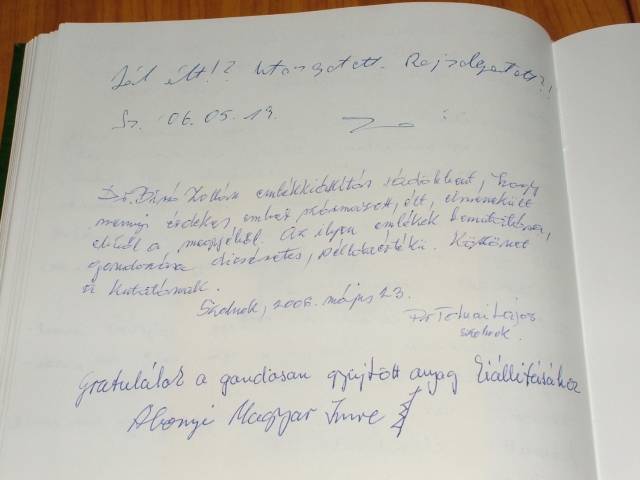 Jól élt!? Utazgatott. Rajzolgatott?!
Sz. 06. 05. 19.
Dr. Bíró Zoltán emlékkiállítás rádöbbent, hogy
mennyi érdekes ember származott, élt, elmenekült
ebből a megyéből. Az ilyen emlékek bemutatása,
gondozása dicséretes, példaértékű. Köszönet
a kutatásnak.
Szolnok, 2006. május 23.
Dr. Tolnai Lajos
Szolnok.
Gratulálok a gondosan gyűjtött anyag kiállításához
Abonyi Magyar Imre